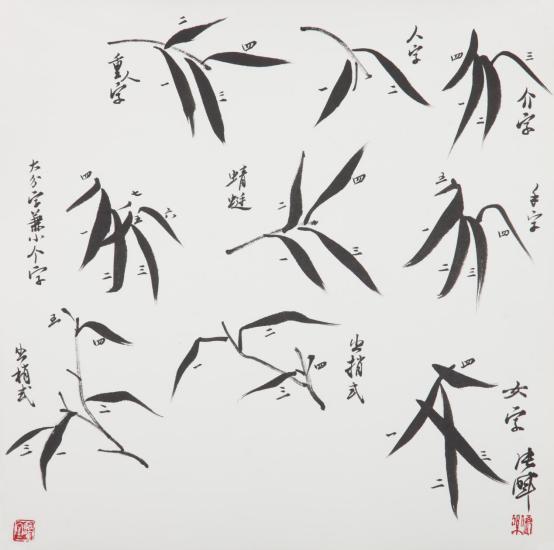 人字
二
一
介字
四
三
一
二
重人字
二
四
一
三
手字
五
一
二
三
四
蜻蜓
二
四
一
三
大分字兼小个字
四
七
五
六
一
二
三
女字
四
一
二
三
出梢式
二
一
三
四
出梢式
五
四
一
二
三